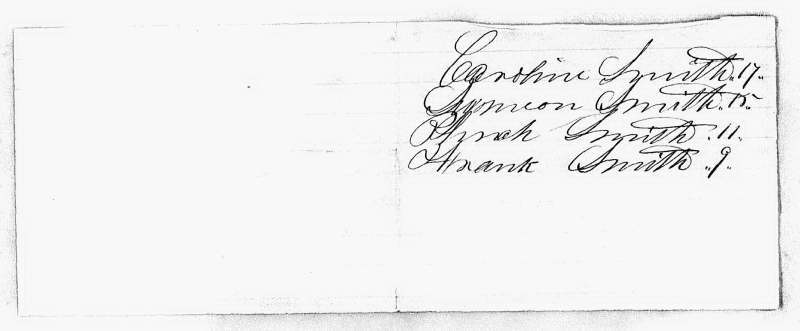 Caroline Smith. 17.
Symeon Smith. 15.
Smith. 11.
Frank Smith. 9.